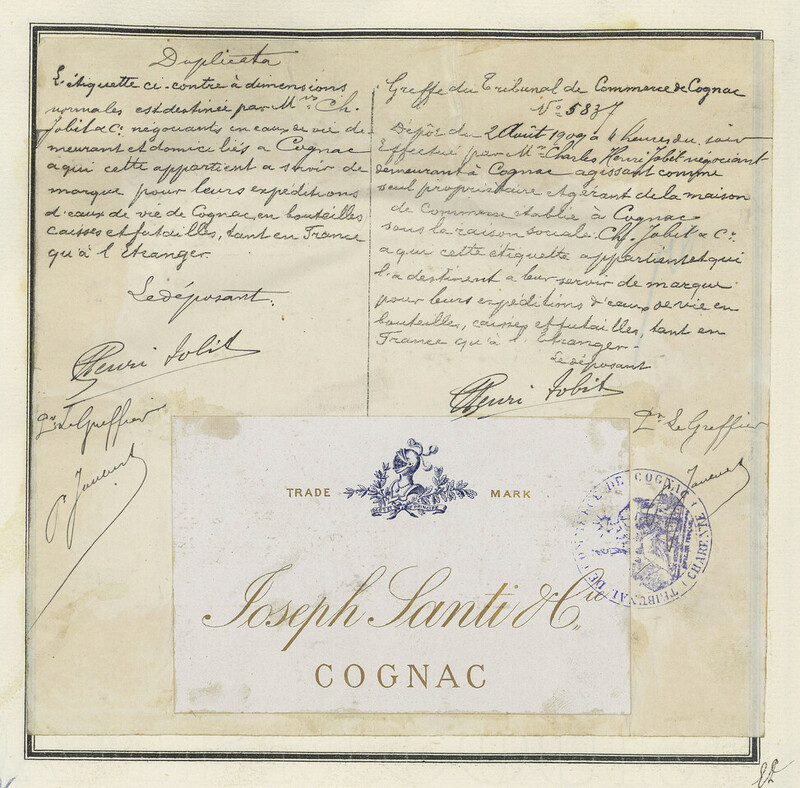 Duplicata
L'étiquette ci-contre à dimensions
normales est destinée par Mrs Ch.
Jobit & Cie négociants en eaux de vie de-
meurant et domiciliés à Cognac
a qui cette appartient a servir de
marque pour leurs expéditions
d'eaux de vie de Cognac, en bouteilles
caisses et futailles, tant en France
qu'à l'Etranger.
Le déposant.
Henri Jobit
Pr Le Greffier
Greffe du Tribunal de Commerce de Cognac
No 5837
Dépôt du 2 Août 1909 à 4 heures du soir
Effectué par Mr Charles Henri Jobit négociant
demeurant à Cognac agissant comme
seul propriétaire et gérant de la maison
de Commerce établie à Cognac
sous la raison sociale: Ch. Jobit & Cie
a qui cette étiquette appartient et qui
l'a destinent a leur servir de marque
pour leurs expéditions d'eaux de vie en
bouteilles, caisses et futailles, tant en
France qu'à l'Etranger-
Le déposant
Henri Jobit
Pr Le Greffier
TRADE MARK
Joseph Santi & Cie
COGNAC
TRIBUNAL DE COMMERCE DE COGNAC (CHARENTE)